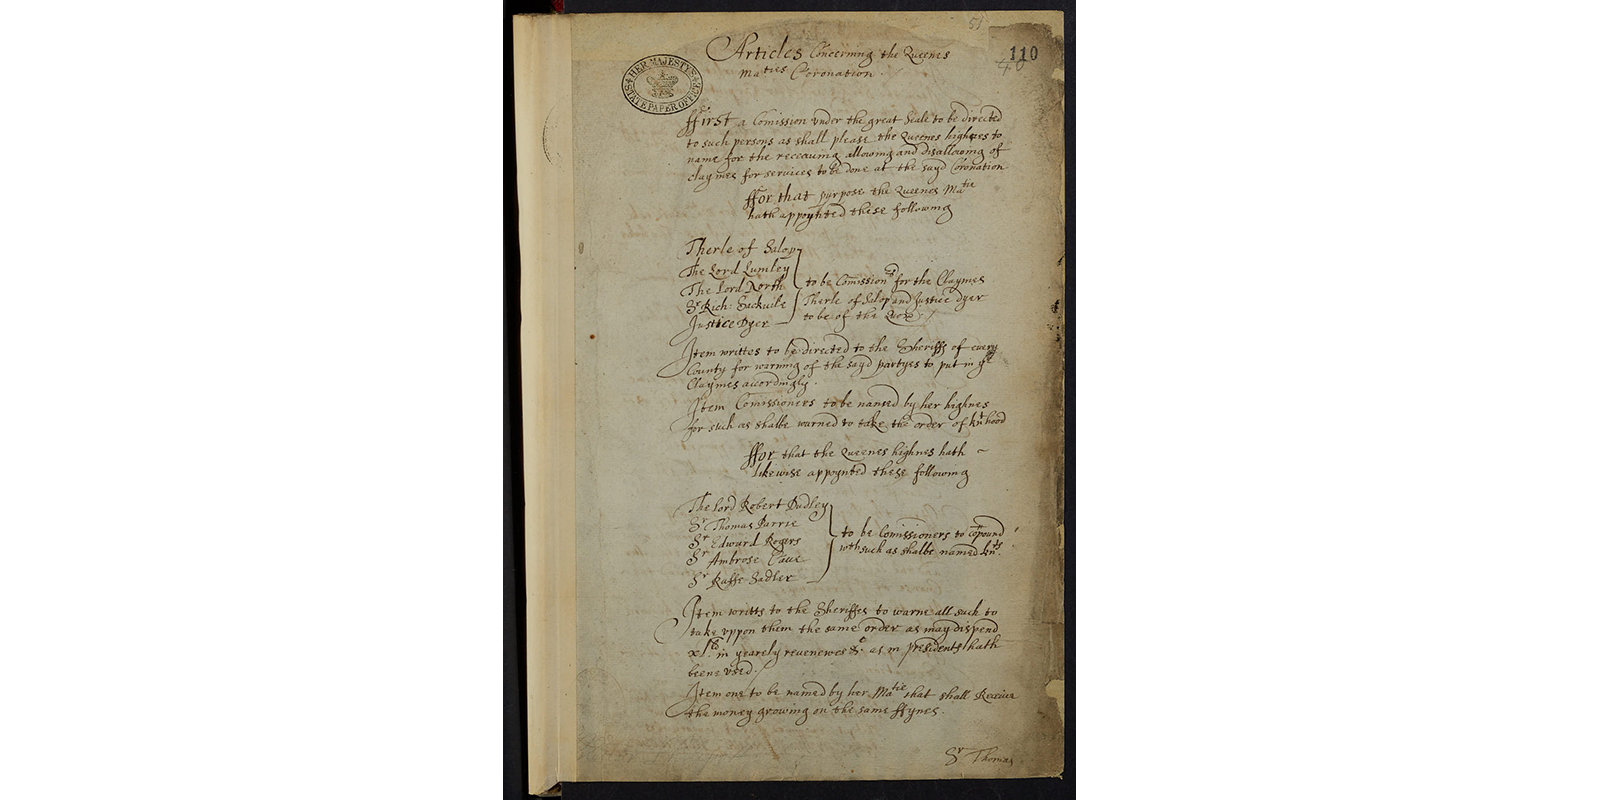 51
110
40
HER MAJESTY'S STATE PAPER OFFICE
Articles Concerning the Queenes
Maties Coronation.
ffirst a Comission vnder the great Seale to be directed
to such persons as shall please the Queenes highnes to
name for the receauing allowing and disallowing of
claymes for services to be done at the sayd Coronation
ffor that purpose the Queenes Matie
hath appoynted these following
Therle of Salop
The Lord Lumley
The Lord North
Sr Rich: Sackuile
Justice Dyer
to be Comissionrs for the Claymes
Therle of Salop and Justice Dyer
to be of the Quor:/
Item writtes to be directed to the Sheriffs of euery
County for warning of the sayd partyes to put in ye
Claymes accordingly.
Item Comissioners to be named by her highnes
for such as shalbe warned to take the order of knthood
ffor that the Queenes highnes hath
likewise appoynted these following
The Lord Robert Dudley
Sr Thomas Parrie
Sr Edward Rogers
Sr Ambrose Caue
Sr Raffe Sadler
to be Comissioners to compound
wth such as shalbe named knts.
Item writts to the Sheriffes to warne all such to
take vppon them the same order as may dispend
xl li in yearely reuenewes &c as in presidents hath
beene vsed.
Item one to be named by her Matie that shall Receiue
the money growing on the same ffynes.
Sr Thomas